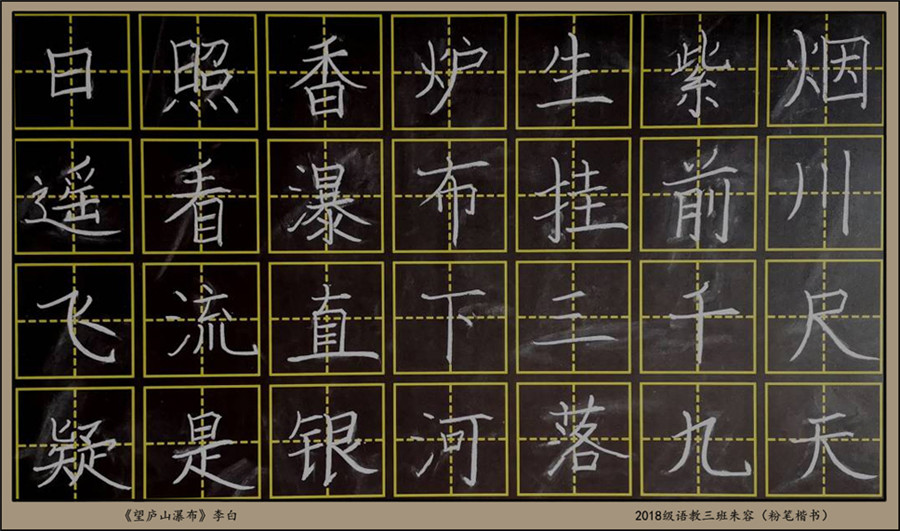 日照香炉生紫烟
遥看瀑布挂前川
飞流直下三千尺
疑是银河落九天
《望庐山瀑布》李白
2018级语教三班朱容（粉笔楷书）